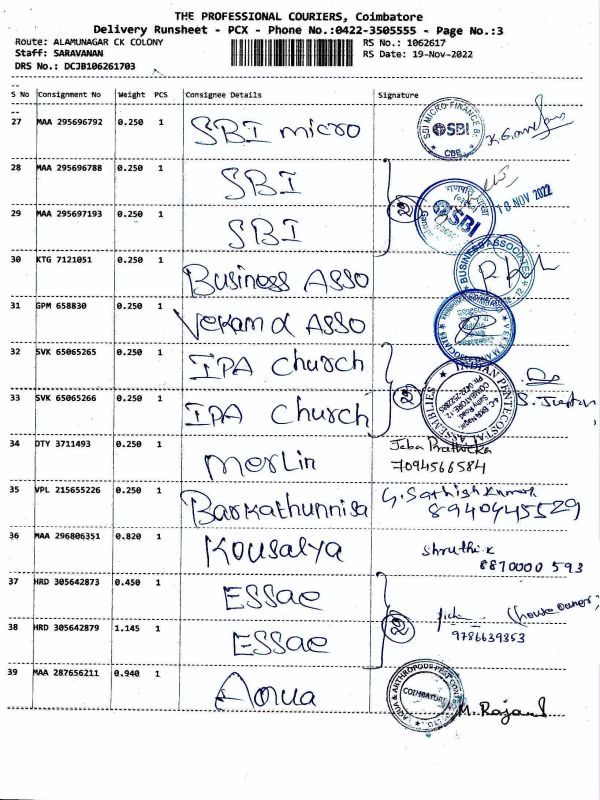 THE PROFESSIONAL COURIERS, Coimbatore
Delivery Runsheet - PCX - Phone No.:0422-3505555 - Page No.:3
Route: ALAMUNAGAR CK COLONY RS No.: 1062617
Staff: SARAVANAN RS Date: 19-Nov-2022
DRS No.: DCJB106261703
S No Consignment No Weight PCS Consignee Details Signature
27 MAA 295696792 0.250 1 SBI micro
SBI MICRO FINANCE
SBI
CBE
28 MAA 295696788 0.250 1 SBI
29
SBI
NOV 2022
29 MAA 295697193 0.250 1 SBI
30 KTG 7121051 0.250 1 Business Asso
BUSINESS ASSOCIATE
31 GPM 658830 0.250 1 Vekam d Asso
32 SVK 65065265 0.250 1 IPA church
29
INDIAN PENTECOSTAL ASSEMBLIES
33 SVK 65065266 0.250 1 IPA church
34 DTY 3711493 0.250 1 Merlin
Jeba Prathicka
7094566584
35 VPL 215655226 0.250 1 Barkathunnisa
G. Sathish Kumar
8940445529
36 MAA 296806351 0.820 1 Kousalya
Shruthi.k
8870000 593
37 HRD 305642873 0.450 1 ESSae
29
(house owner)
9786639353
38 HRD 305642879 1.145 1 ESSae
39 MAA 287656211 0.940 1 Aqua
COIMBATORE
M. Rajan